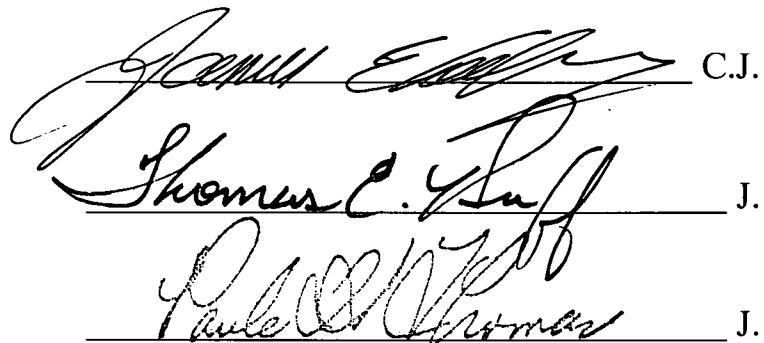 James E. C.J.
Thomas E. Huff J.
Paula Thomas J.